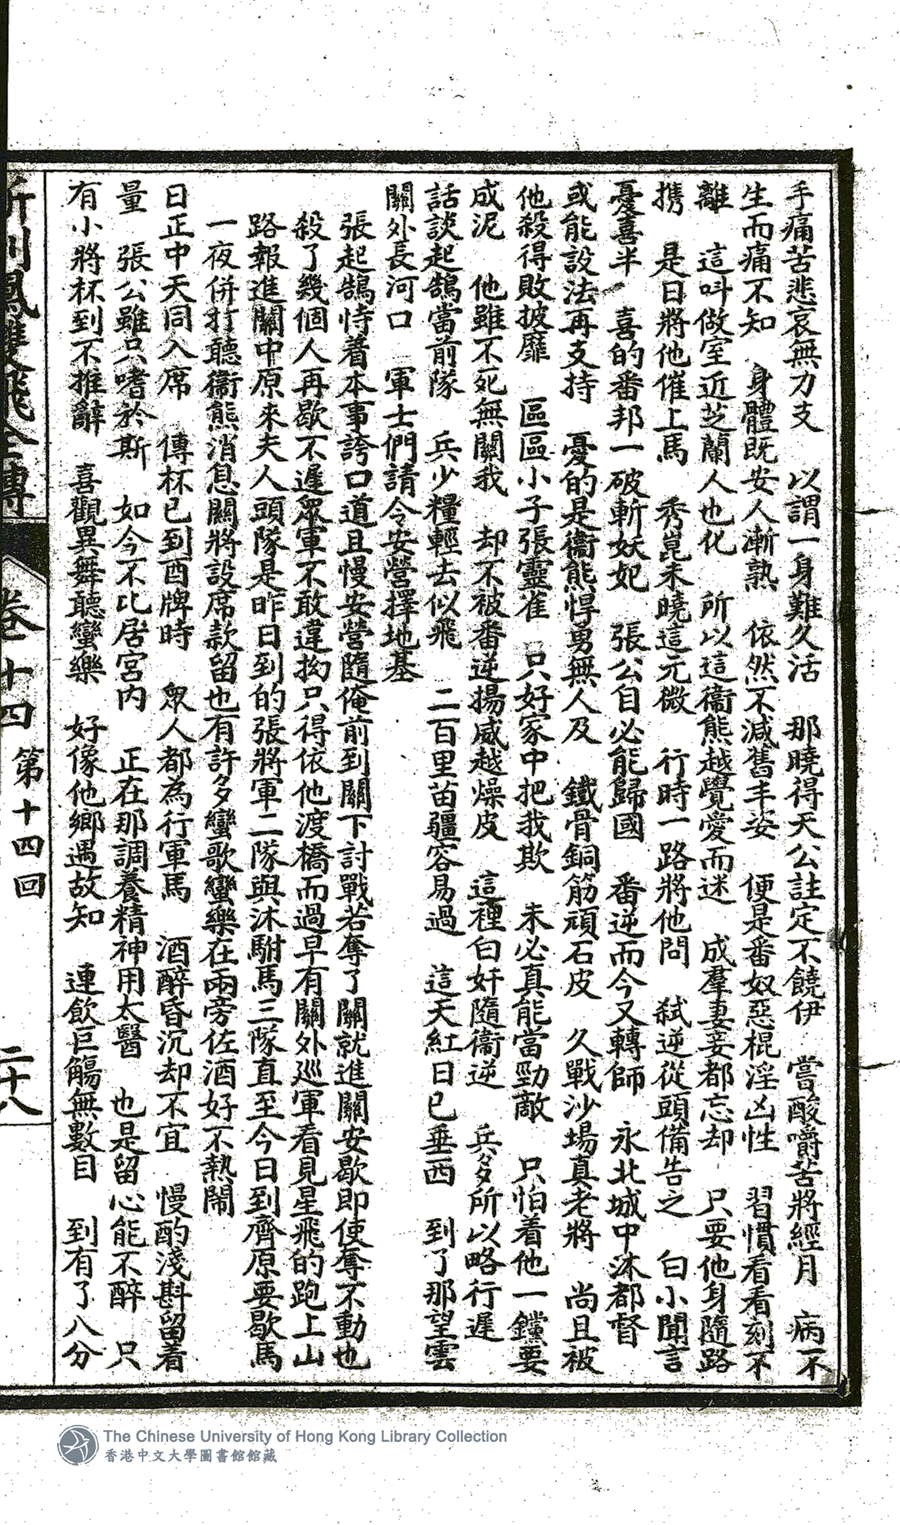 手痛苦悲哀無力支　以謂一身難久活　那曉得天公註定不饒伊　嘗酸嚼苦將經月　病不
生而痛不知　身體既安人漸熟　依然不減舊丰姿　便是番奴惡棍淫凶性　習慣看看刻不
離　這呌做室近芝蘭人也化　所以這衞熊越覺愛而迷　成羣妻妾都忘却　只要他身隨路
携　是日將他催上馬　秀崑未曉這元微　行時一路將他問　弒逆從頭備告之　白小聞言
憂喜半　喜的番邦一破斬妖妃　張公自必能歸國　番逆而今又轉師　永北城中沐都督
或能設法再支持　憂的是衞熊悍勇無人及　鐵骨銅筋頑石皮　久戰沙場真老將　尚且被
他殺得敗披靡　區區小子張靈雀　只好家中把我欺　未必真能當勁敵　只怕着他一鑣要
成泥　他雖不死無關我　却不被番逆揚威越燥皮　這裡白奸隨衞逆　兵多所以略行遲
話談起鵠當前隊　兵少糧輕去似飛　二百里苗疆容易過　這天紅日已垂西　到了那望雲
關外長河口　軍士們請令安營擇地基
張起鵠恃着本事誇口道且慢安營隨俺前到關下討戰若奪了關就進關安歇即使奪不動也
殺了幾個人再歇不遲眾軍不敢違拗只得依他渡橋而過早有關外巡軍看見星飛的跑上山
路報進關中原來夫人頭隊是昨日到的張將軍二隊與沐駙馬三隊直至今日到齊原要歇馬
一夜併打聽衞熊消息關將設席款留也有許多蠻歌蠻樂在兩旁佐酒好不熱鬧
日正中天同入席　傳杯已到酉牌時　眾人都為行軍馬　酒醉昏沉却不宜　慢酌淺斟留着
量　張公雖只嗜於斯　如今不比居宮內　正在那調養精神用太醫　也是留心能不醉　只
有小將杯到不推辭　喜觀異舞聽蠻樂　好像他鄉遇故知　連飲巨觴無數目　到有了八分
新刊鳳雙飛全傳　卷十四　第十四回　二十八
The Chinese University of Hong Kong Library Collection
香港中文大學圖書館館藏